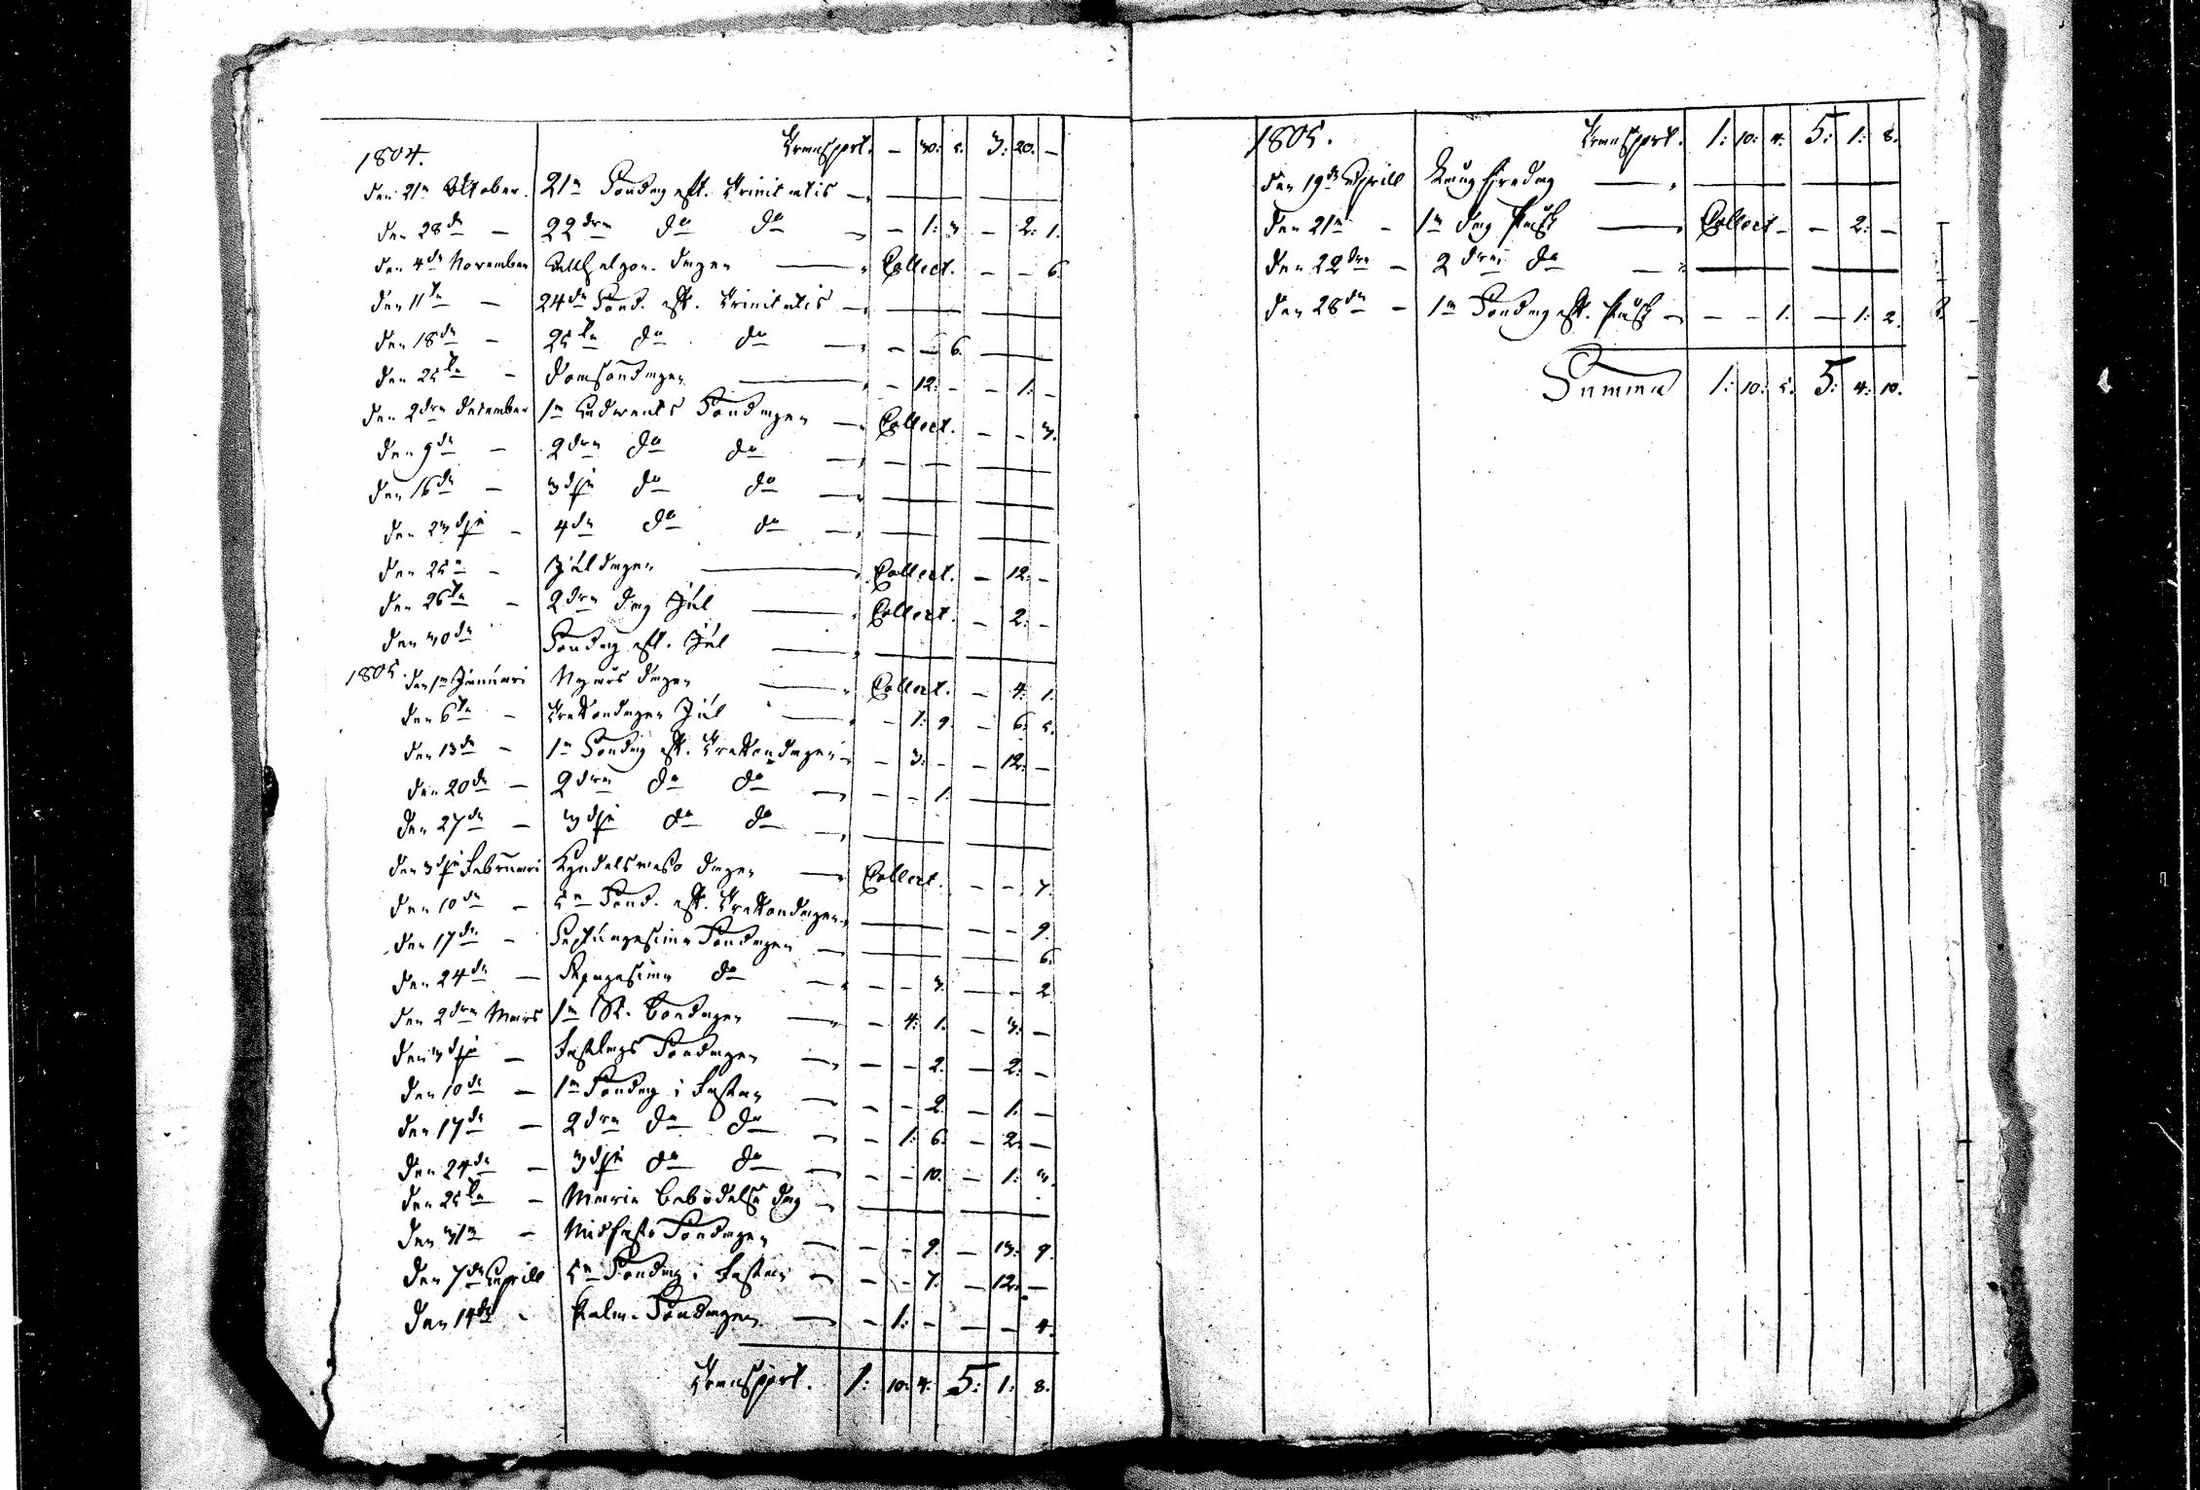 1804. Transport. – 30: 5. 3: 20. –
den 21n Oktober. 21n Söndag eft. Trinitatis —
den 28de — 22dra do do — – 1: 3 – 2: 1.
den 4de November Allhelgon. dagen — Collect. – – 6
den 11te — 24de Sönd. eft. Trinitatis —
den 18de — 25te do do — – – 6. —
den 25te — Domsöndagen — – 12: – – 1: –
den 2dra December 1n Advents Söndagen — Collect. – – 3.
den 9de — 2dra do do — – –
den 16de — 3dje do do —
den 23dje — 4de do do —
den 25n — Juldagen — Collect. – 12: –
den 26te — 2dra dag Jul — Collect. – 2: –
den 30de Söndag eft. Jul —
1805. den 1n Januari Nyårs dagen — Collect. – 4: 1.
den 6te — Trettondagen Jul — – 1: 9. – 6: 5.
den 13de — 1n Söndag eft. Trettondagen – – 3: – – 12: –
den 20de — 2dra do do — – – 1. —
den 27de — 3dje do do —
den 3dje Februari Kyndelsmässo dagen — Collect. – – 7.
den 10de — 5te Sönd. eft. Trettondagen. — – – 9.
den 17de — Septuagesima Söndagen — – 6.
den 24de — Sexagesima do — – – 3. – – 2
den 2dra Mars 1n St.Böndagen — – 4: 1. – 3: –
den 3dje — Fastlags Söndagen — – – 2. – 2: –
den 10de — 1n Söndag i Fastan — – – 2. – 1: –
den 17de — 2dra do do — – 1: 6. – 2: –
den 24de — 3dje do do — – – 10. – 1: 3.
den 25te — Mariæ bebådelse dag —
den 31n — Midfasto Söndagen — – – 9. – 13: 9.
den 7de Aprill 5te Söndag i Fastan — – – 7. – 12: –
den 14de – Palm-Söndagen — – 1: – – – 4.
Transport. 1: 10: 4. 5: 1: 8.
1805. Transport. 1: 10: 4. 5: 1: 8.
den 19de Aprill Långfredag —
den 21n – 1n dag Påsk — Collect – – 2: –
den 22dra – 2dra do —
den 28de – 1n Söndag eft. Påsk – – – 1. – 1: 2.
Summa 1: 10: 5. 5: 4: 10.